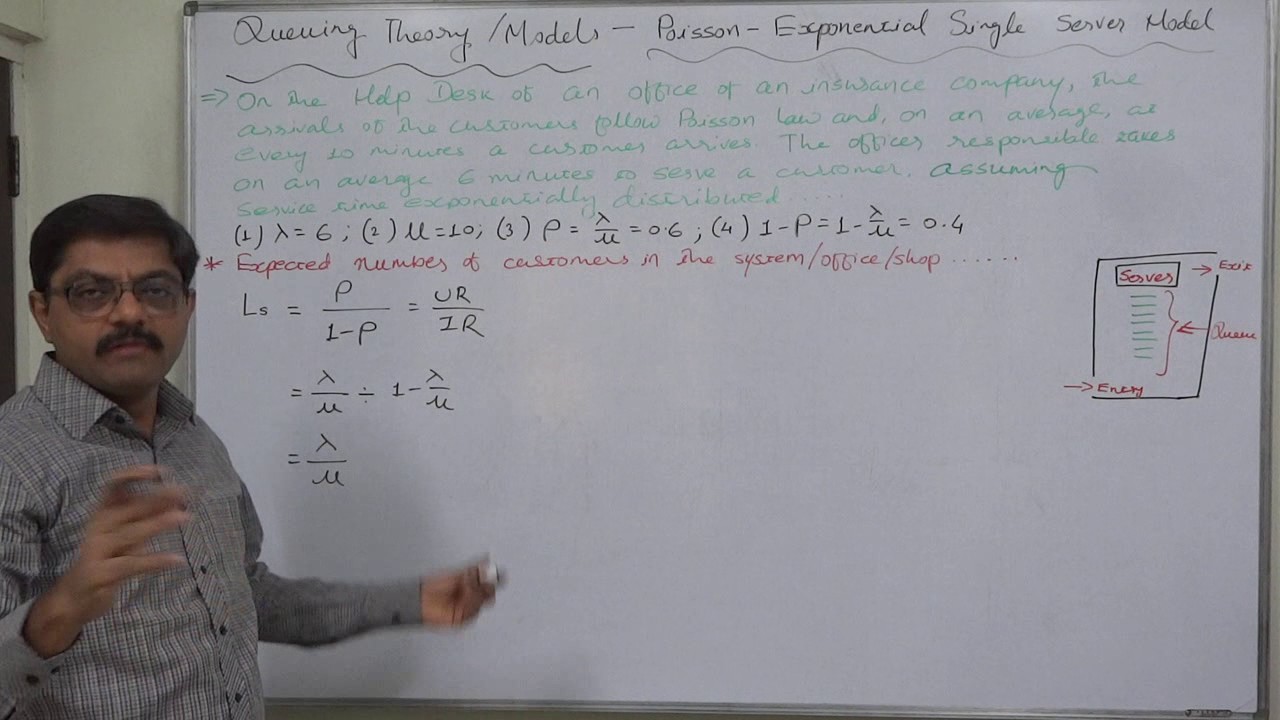 Queuing Theory/Models – Poisson-Exponential Single Server Model
⇒ On the Help Desk of an office of an insurance company, the
arrivals of the customers follow Poisson law and, on an average, at
every 10 minutes a customer arrives. The officer responsible takes
on an average 6 minutes to serve a customer, assuming
service time exponentially distributed.....
(1) λ = 6 ; (2) μ = 10; (3) ρ = λ/μ = 0.6 ; (4) 1-ρ = 1-λ/μ = 0.4
* Expected number of customers in the system/office/shop ......
Ls = ρ/(1-ρ) = UR/IR
= λ/μ ÷ 1-λ/μ
= λ/μ
Server
→ Exit
← Queue
→ Entry